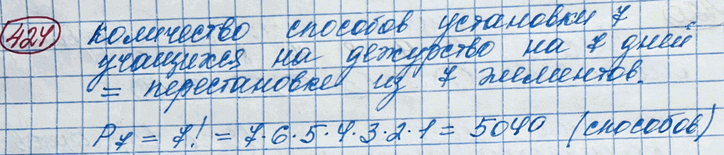 424 количество способов установки 7
учащихся на дежурство на 7 дней
= перестановке из 7 элементов.
P₇ = 7! = 7·6·5·4·3·2·1 = 5040 (способов)